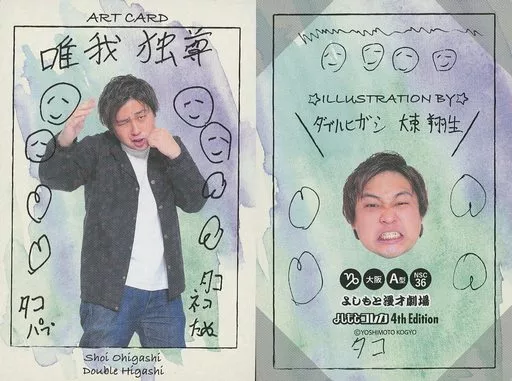 ART CARD
唯我独尊
タコ
パブ
タコ
ネコ
Shoi Ohigashi
Double Higashi
☆ILLUSTRATION BY☆
ダブルヒガシ 大東 翔生
大阪
A型
NSC
36
よしもと漫才劇場
4th Edition
©YOSHIMOTO KOGYO
タコ